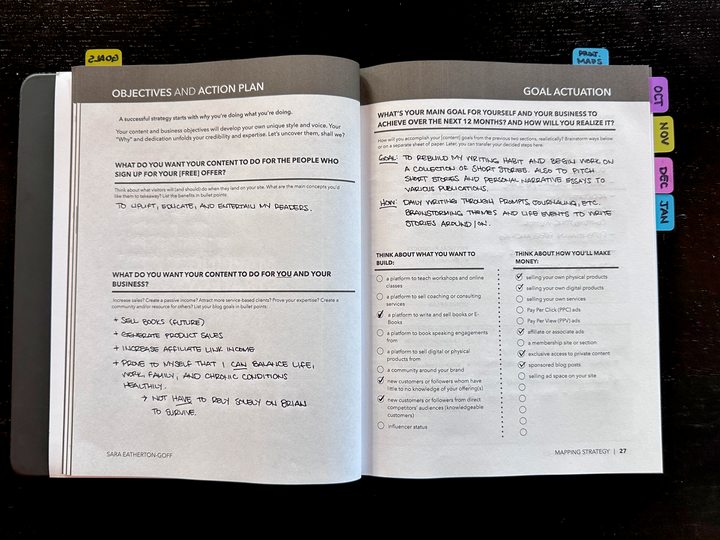 GOALS
PROJ. MAPS
OCT
NOV
DEC
JAN
OBJECTIVES AND ACTION PLAN
A successful strategy starts with why you're doing what you're doing.
Your content and business objectives will develop your own unique style and voice. Your
"Why" and dedication unfolds your credibility and expertise. Let's uncover them, shall we?
WHAT DO YOU WANT YOUR CONTENT TO DO FOR THE PEOPLE WHO
SIGN UP FOR YOUR [FREE] OFFER?
Think about what visitors will (and should) do when they land on your site. What are the main concepts you'd
like them to takeaway? List the benefits in bullet points.
TO UPLIFT, EDUCATE, AND ENTERTAIN MY READERS.
WHAT DO YOU WANT YOUR CONTENT TO DO FOR YOU AND YOUR
BUSINESS?
Increase sales? Create a passive income? Attract more service-based clients? Prove your expertise? Create a
community and/or resource for others? List your blog goals in bullet points.
+ SELL BOOKS (FUTURE)
+ GENERATE PRODUCT SALES
+ INCREASE AFFILIATE LINK INCOME
+ PROVE TO MYSELF THAT I CAN BALANCE LIFE,
WORK, FAMILY, AND CHRONIC CONDITIONS
HEALTHILY.
→ NOT HAVE TO RELY SOLELY ON BRIAN
TO SURVIVE.
SARA EATHERTON-GOFF
GOAL ACTUATION
WHAT'S YOUR MAIN GOAL FOR YOURSELF AND YOUR BUSINESS TO
ACHIEVE OVER THE NEXT 12 MONTHS? AND HOW WILL YOU REALIZE IT?
How will you accomplish your [content] goals from the previous two sections, realistically? Brainstorm ways below
or on a separate sheet of paper. Later, you can transfer your decided steps here.
GOAL: TO REBUILD MY WRITING HABIT AND BEGIN WORK ON
A COLLECTION OF SHORT STORIES. ALSO TO PITCH
SHORT STORIES AND PERSONAL NARRATIVE ESSAYS TO
VARIOUS PUBLICATIONS.
HOW: DAILY WRITING THROUGH PROMPTS, JOURNALING, ETC.
BRAINSTORMING THEMES AND LIFE EVENTS TO WRITE
STORIES AROUND/ON.
THINK ABOUT WHAT YOU WANT TO
BUILD:
a platform to teach workshops and online
classes
a platform to sell coaching or consulting
services
a platform to write and sell books or E-
Books
a platform to book speaking engagements
from
a platform to sell digital or physical
products from
a community around your brand
new customers or followers whom have
little to no knowledge of your offering(s)
new customers or followers from direct
competitors' audiences (knowledgeable
customers)
influencer status
THINK ABOUT HOW YOU'LL MAKE
MONEY:
selling your own physical products
selling your own digital products
selling your own services
Pay Per Click (PPC) ads
Pay Per View (PPV) ads
affiliate or associate ads
a membership site or section
exclusive access to private content
sponsored blog posts
selling ad space on your site
MAPPING STRATEGY | 27